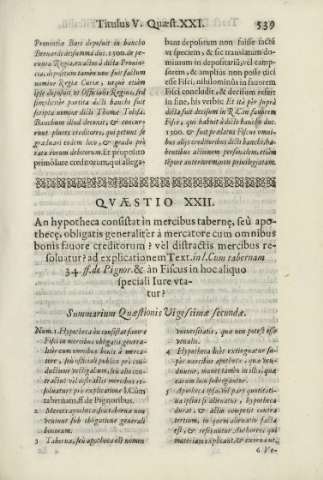 Titulus V. Quæst. XXI. 539
Provintiæ Bari deposuit in bancho
Bernardi de summa duc. 1500. de pe-
cunia Regia, ex altera dicta Provin-
cia; depositum tamen non fuit factum
nomine Regiæ Curiæ, neque etiam
ipse deposuit ut Officialis Regius, sed
simpliciter partita dicti banchi fuit
scripta
Bancum illud decoxit, & concur-
runt plures creditores, qui petunt se
graduari eodem loco, & gradu pro
rata eorum debitorum. Et proposito
primò iure creditorum, qui allega-
bant depositum non fuisse factum
in specie, & sic translatum do-
minium in depositariū, vel camp-
sorem, & amplius non posse dici
esse Fisci, nihilominus in favorem
Fisci conclusit, & decisum refert
in fine, his verbis: Et ita pro
dicta fuit decisum in R. C. in favorem
Fisci, qui habuit à dicti bancho duc.
1500. & fuit prælatus Fiscus omni-
bus aliis creditoribus dicti banchi, ha-
bentibus actionem personalem, etiam
tempore anteriorem privilegiatam.
QVÆSTIO XXII.
An hypotheca consistat in mercibus tabernę, seù apo-
thecę, obligatis generaliter à mercatore cum omnibus
bonis favore creditorum? vel distractis mercibus re-
solvatur? ad explicationem Text. in l. Cum tabernam
34. ff. de Pignor. & an Fiscus in hoc aliquo
speciali Iure vta-
tur?
Summarium Quæstionis Vigesimæ secundæ.
Num. 1. Hypotheca in consistat favore
Fisci in mercibus obligatis genera-
liter cum omnibus bonis à merca-
tore, seu officiali publico pro
vectigalium, seu alio con-
tractu? vel distractis mercibus re-
solvatur? pro explicatione l. Cum
tabernam, ff. de Pignoribus.
2 Merces apothecæ seu tabernæ non
veniunt sub obligatione generali
bonorum.
3 Taberna, seu apotheca est nomen
universitatis, quæ non potest esse
venalis.
4 Hypotheca licet extinguatur su-
per mercibus apothecæ, quæ ven-
duntur, manet tamen in aliis, quæ
earum loco subrogantur.
5
ipsius sit alienatus, hypotheca
durat, & alliis competit contra
tertium, in quem alienatio facta
est, &
materiam explicant, & exornant.
6 Ve-